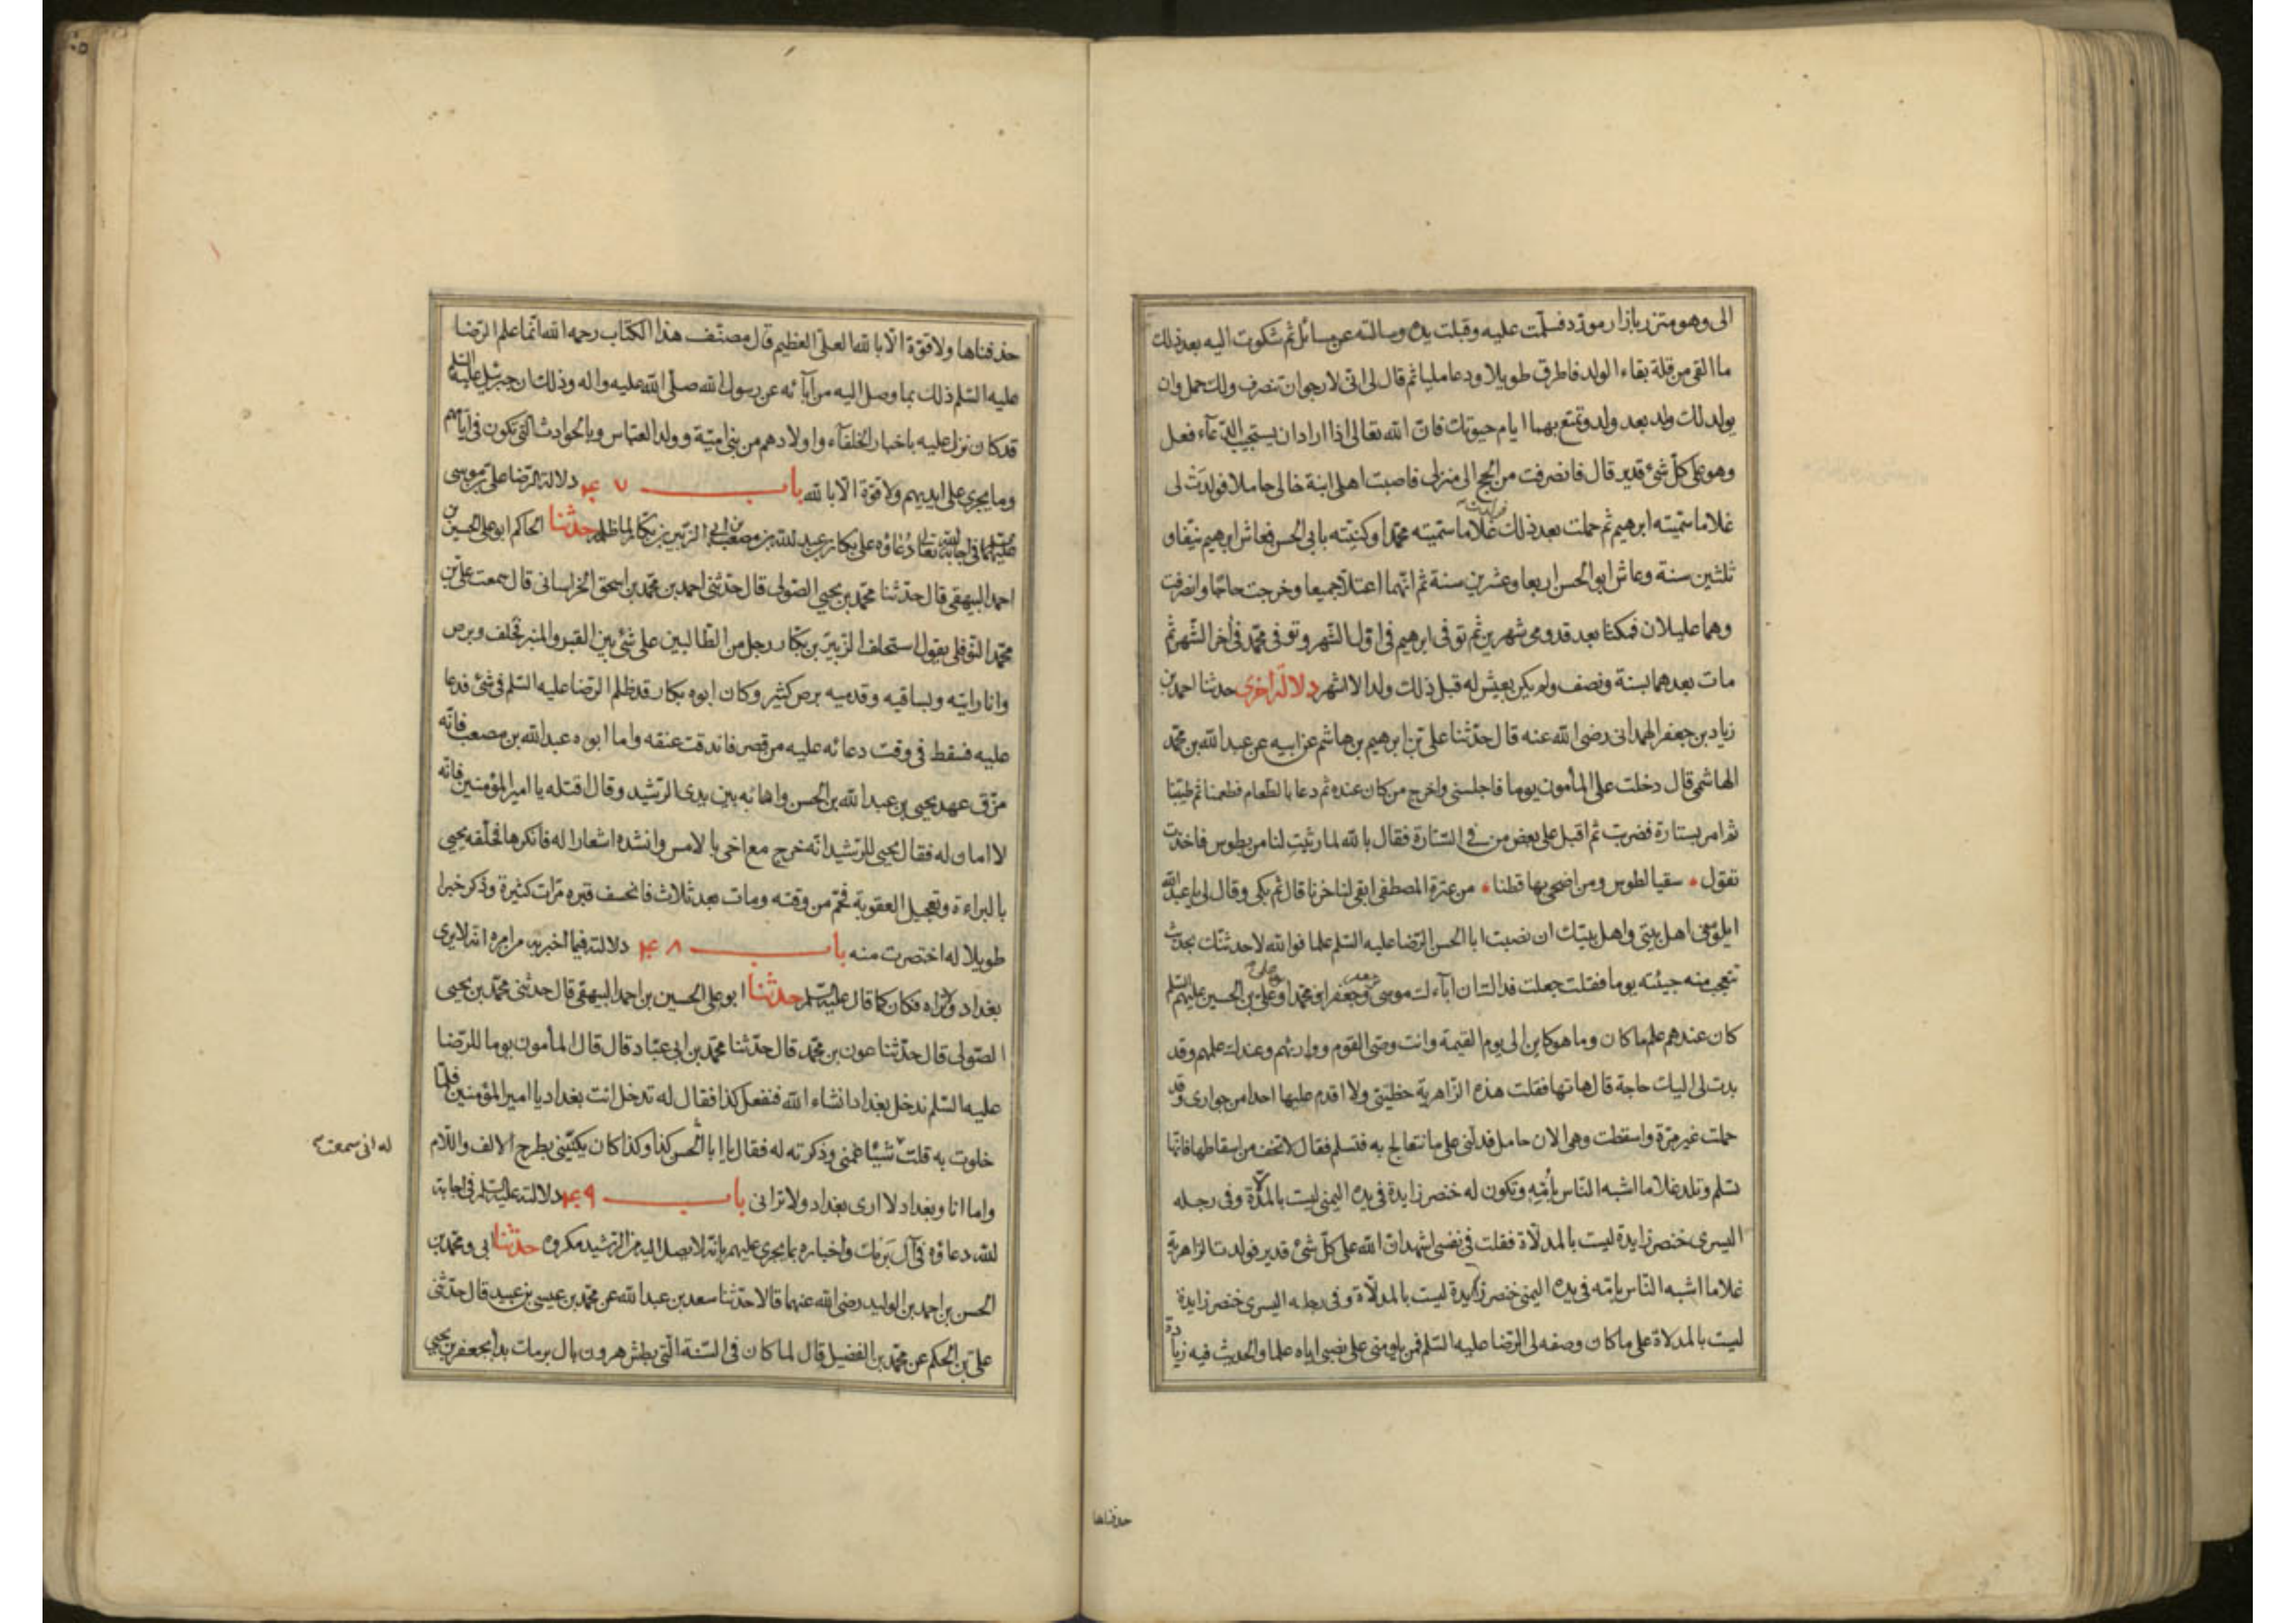 الى وهو متزر بازار مورد فسلّمت عليه وقبلت يده وسالته عن مسائل ثم شكوت اليه بعد ذلك
ما القى من قلة بقاء الولد فاطرق طويلا ودعا مليا ثم قال لى انى لارجو ان تنصرف ولك حمل وان
يولد لك ولد بعد ولد وتمتع بهما ايام حيوتك فان الله تعالى اذا اراد ان يستجيب الدعآء فعل
وهو على كل شئ قدير قال فانصرفت من الحج الى منزلى فاصبت اهلى ابنة خالى حاملا فولدت لى
غلاما سمّيته ابرهيم ثم حملت بعد ذلك فولدت غلاما سمّيته محمدا وكنيته بابى الحسن فعاش ابرهيم نيفا و
ثلثين سنة وعاش ابو الحسن اربعا وعشرين سنة ثم انهما اعتلا جميعا وخرجت حاجا وانصرفت
وهما عليلان فمكثا بعد قدومى شهرين ثم توفى ابرهيم فى اول الشهر وتوفى محمد فى اخر الشهر ثم
مات بعدهما بسنة ونصف ولم يكن يعيش له قبل ذلك ولد الا اشهر دلالة اخرى حدثنا احمد بن
زياد بن جعفر الهمدانى رضى الله عنه قال حدّثنا على بن ابرهيم بن هاشم عن ابيه عن عبد الله بن محمّد
الهاشمى قال دخلت على المأمون يوما فاجلسنى واخرج من كان عنده ثم دعا بالطعام فطعمنا ثم طيّبنا
ثم امر بستارة فضربت ثم اقبل على بعض من فى الستارة فقال بالله لما رثيت لنا من بطوس فاخذت
تقول * سقيا لطوس ومن اضحى بها قطنا * من عترة المصطفى ابقى لنا حزنا قال ثم بكى وقال لى يا عبد الله
ايلومنى اهل بيتى واهل بيتك ان نصبت ابا الحسن الرضا عليه السّلم علما فوالله لاحدثنّك بحديث
تتعجب منه جيئته يوما فقلت جعلت فداك ان آباءك موسى وجعفرا ومحمدا وعلى بن الحسين عليهم السلم
كان عندهم علم ما كان وما هو كاين الى يوم القيمة وانت وصى القوم ووارثهم وعندك علمهم وقد
بدت لى اليك حاجة قال هاتها فقلت هذه الزاهرية حظيتى ولا اقدم عليها احدا من جوارى وقد
حملت غير مرّة واسقطت وهى الان حامل فدلّنى على ما نتعالج به فتسلم فقال لا تخف من اسقاطها فانها
تسلم وتلد غلاما اشبه النّاس بأمّه وتكون له خنصر زايدة فى يده اليمنى ليست بالمدلّاة وفى رجله
اليسرى خنصر زايدة ليست بالمدلّاة فقلت فى نفسى اشهد ان الله على كلّ شئ قدير فولدت الزاهرية
غلاما اشبه النّاس بامّه فى يده اليمنى خنصر زايدة ليست بالمدلّاة وفى رجله اليسرى خنصر زايدة
ليست بالمدلاة على ما كان وصفه لى الرّضا عليه السّلم فمن يلومنى على نصبى اياه علما والحديث فيه زيادة
حذفناها
حذفناها ولا قوّة الّا بالله العلىّ العظيم قال مصنّف هذا الكتاب رحمه الله انّما علم الرّضا
عليه السّلم ذلك بما وصل اليه من آبائه عن رسول الله صلّى الله عليه واله وذلك ان جبرئيل عليه السلم
قد كان نزل عليه باخبار الخلفآء واولادهم من بنى اميّة وولد العبّاس وبالحوادث التى تكون فى ايّامهم
وما يجرى على ايديهم ولا قوّة الّا بالله باب ٤٧ دلالة الرّضا على بن موسى
عليهما السلم فى اجابة الله تعالى دُعاؤه على بكار بن عبد الله بن مصعب بن الزّبير بن بكّار لما ظلمه حدّثنا الحاكم ابو على الحسين بن
احمد البيهقى قال حدّثنا محمّد بن يحيى الصّولى قال حدّثنى احمد بن محمّد بن اسحق الخراسانى قال سمعت علىّ بن
محمّد النّوفلى يقول استحلف الزّبير بن بكّار رجل من الطّالبين على شئ بين القبر والمنبر فحلف وبرص
وانا رايته وبساقيه وقدميه برص كثير وكان ابوه بكار قد ظلم الرّضا عليه السّلم فى شئ فدعا
عليه فسقط فى وقت دعائه عليه من قصر فاندقت عنقه واما ابوه عبد الله بن مصعب فانّه
مزّق عهد يحيى بن عبد الله بن الحسن واهانه بين يدى الرّشيد وقال اقتله يا امير المؤمنين فانّه
لا امان له فقال يحيى للرّشيد انّه خرج مع اخى بالامس وانشده اشعارا له فانكرها فحلّفه يحيى
بالبراءة وتعجيل العقوبة فحُمّ من وقته ومات بعد ثلاث فانخسف قبره مرّات كثيرة وذكر خبرا
طويلا له اختصرت منه باب ٤٨ دلالته فيما اخبر به من امره انه لا يرى
بغداد ولا تراه فكان كما قال عليه السّلم حدّثنا ابو على الحسين بن احمد البيهقى قال حدثنى محمّد بن يحيى
الصّولى قال حدّثنا عون بن محمّد قال حدّثنا محمّد بن ابى عبّاد قال قال المأمون يوما للرّضا
عليه السّلم ندخل بغداد انشاء الله فنفعل كذا فقال له تدخل انت بغداد يا امير المؤمنين فلمّا
خلوت به قلت شيئا غمّنى وذكرته له فقال يا ابا الحسن كذا وكذا كان يكنّينى بطرح الالف واللّام
له انى سمعت
واما انا وبغداد لا ارى بغداد ولا ترانى باب ٤٩ دلالته عليه السّلم فى اجابة
الله دعاؤه فى آل بَرمك واخباره بما يجرى عليهم بانّه لا يصل اليه من الرّشيد مكروه حدّثنا ابى ومحمّد بن
الحسن بن احمد بن الوليد رضى الله عنهما قالا حدّثنا سعد بن عبد الله عن محمّد بن عيسى بن عبيد قال حدّثنى
علىّ بن الحكم عن محمّد بن الفضيل قال لما كان فى السّنة الّتى بطش هرون بال برمك بدأ بجعفر بن يحيى